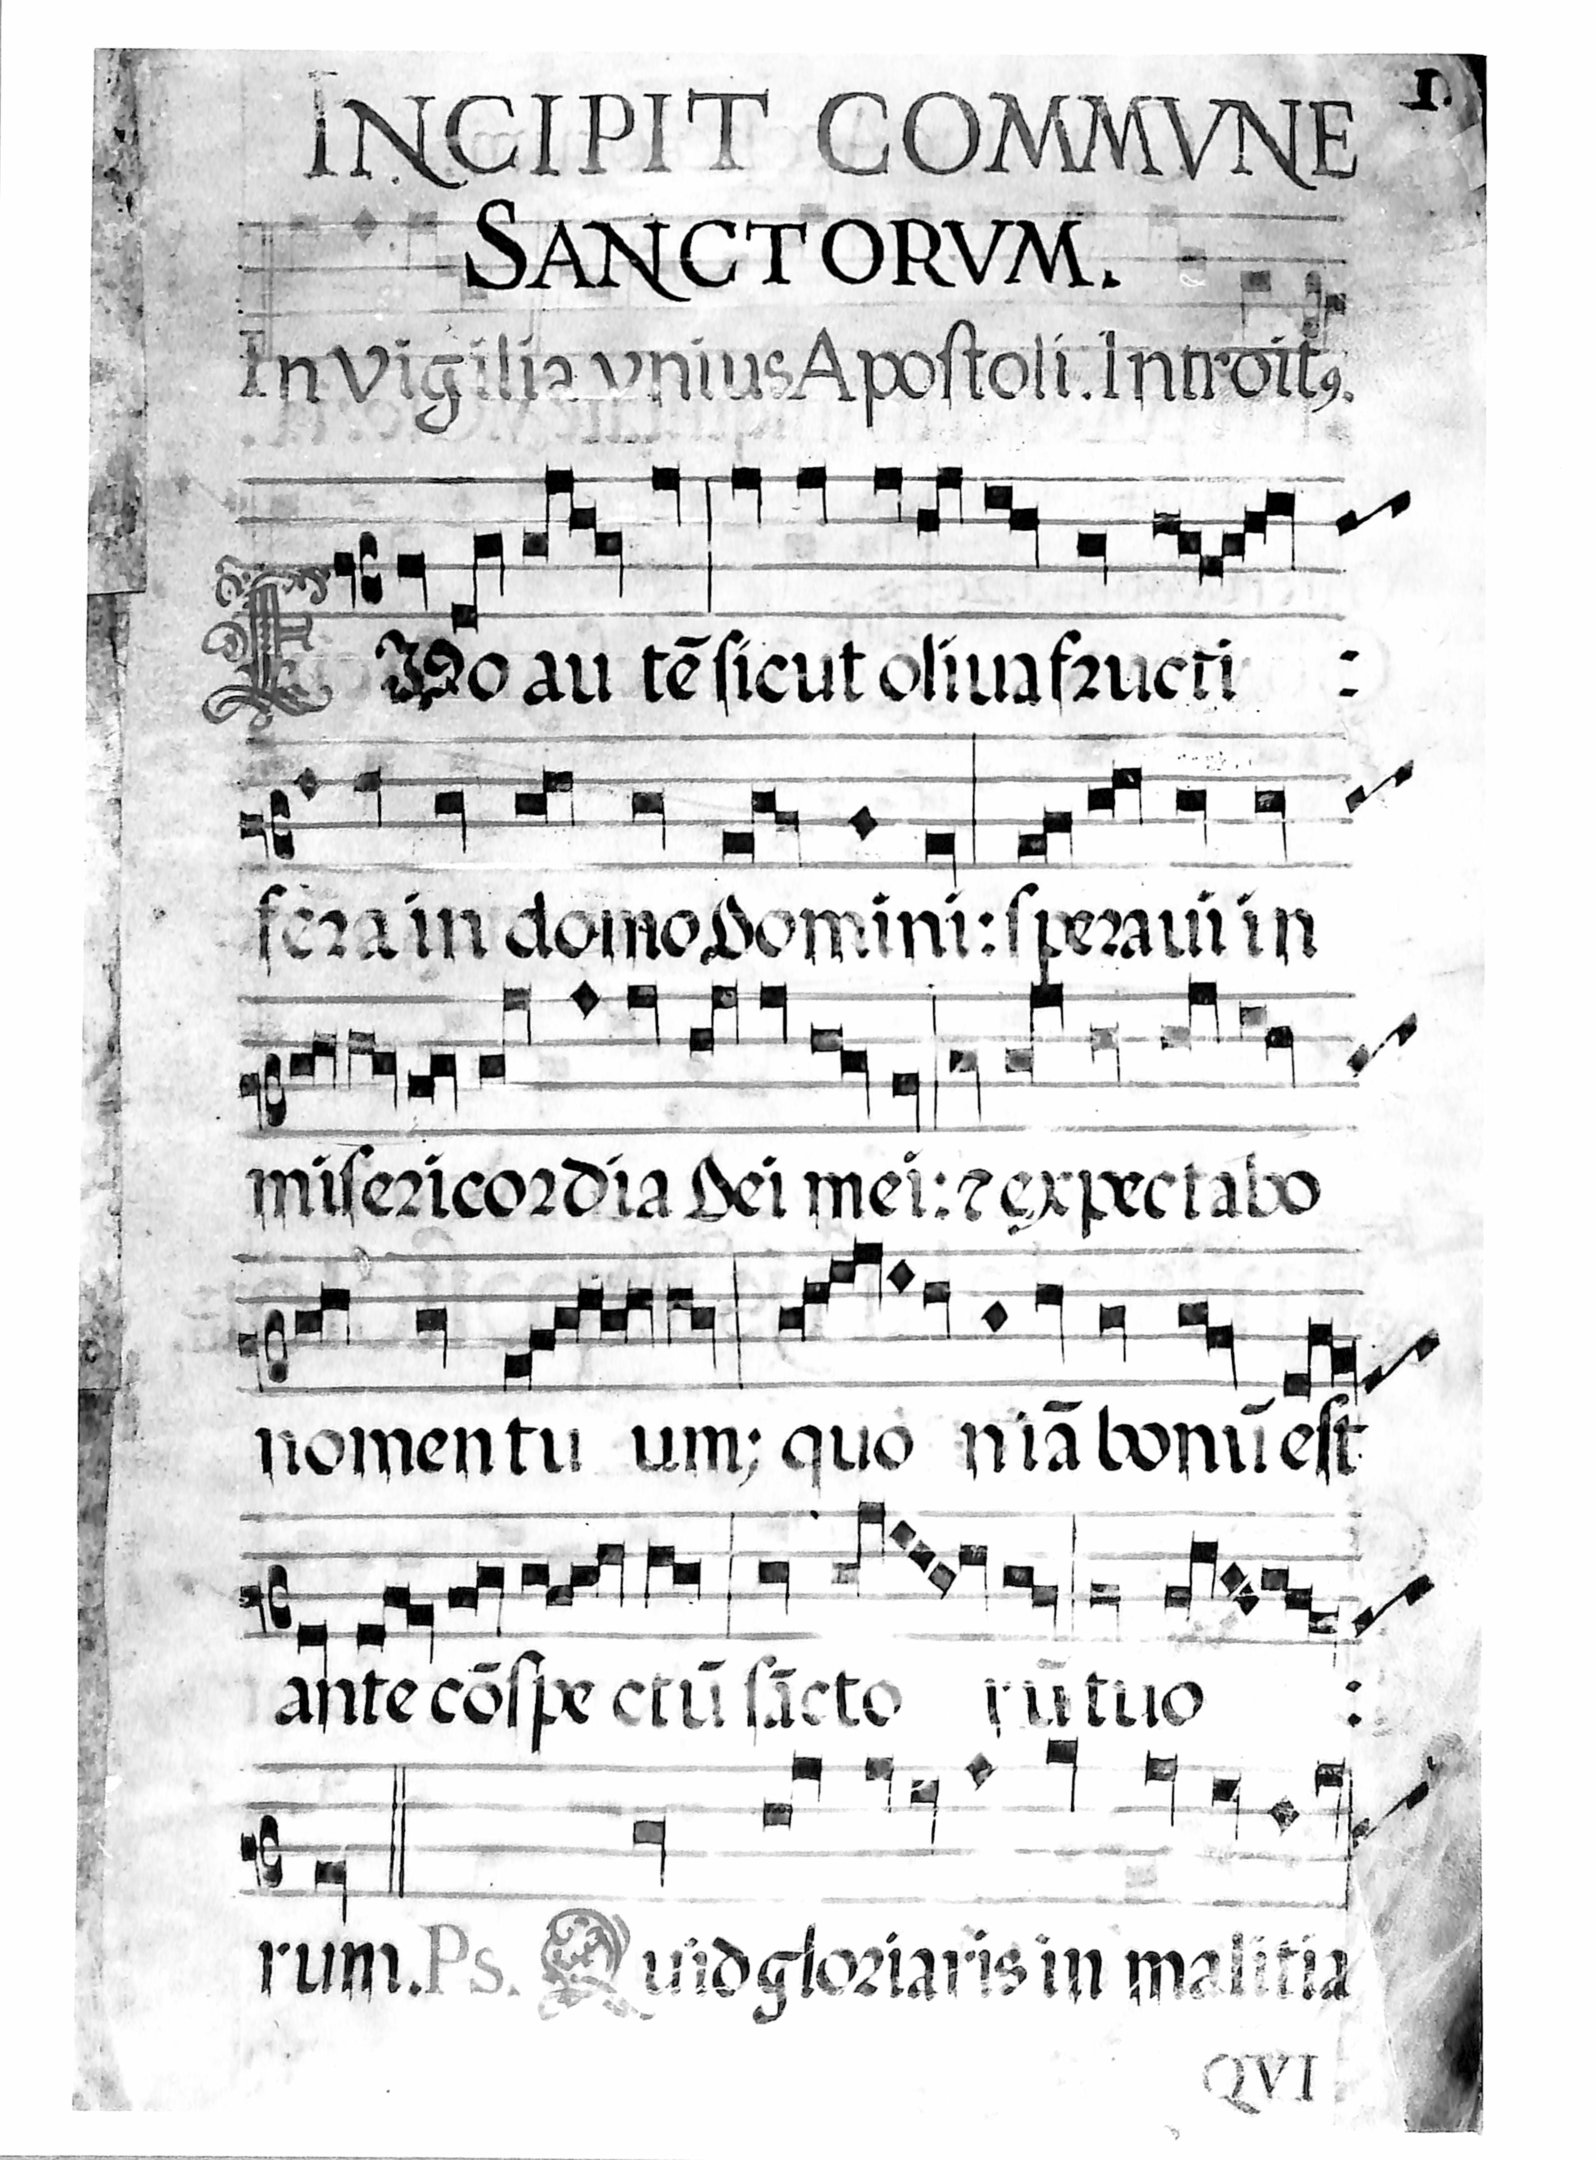 1.
INCIPIT COMMVNE
SANCTORVM.
In Vigilia vnius Apostoli. Introitꝰ.
EGo au tē sicut oliua fructi :
fera in domo Domini: speraui in
misericordia Dei mei: ⁊ expectabo
nomen tu um; quo niā bonū est
ante cōspe ctū sācto rū tuo :
rum. Ps. Quid gloriaris in malitia
QVI